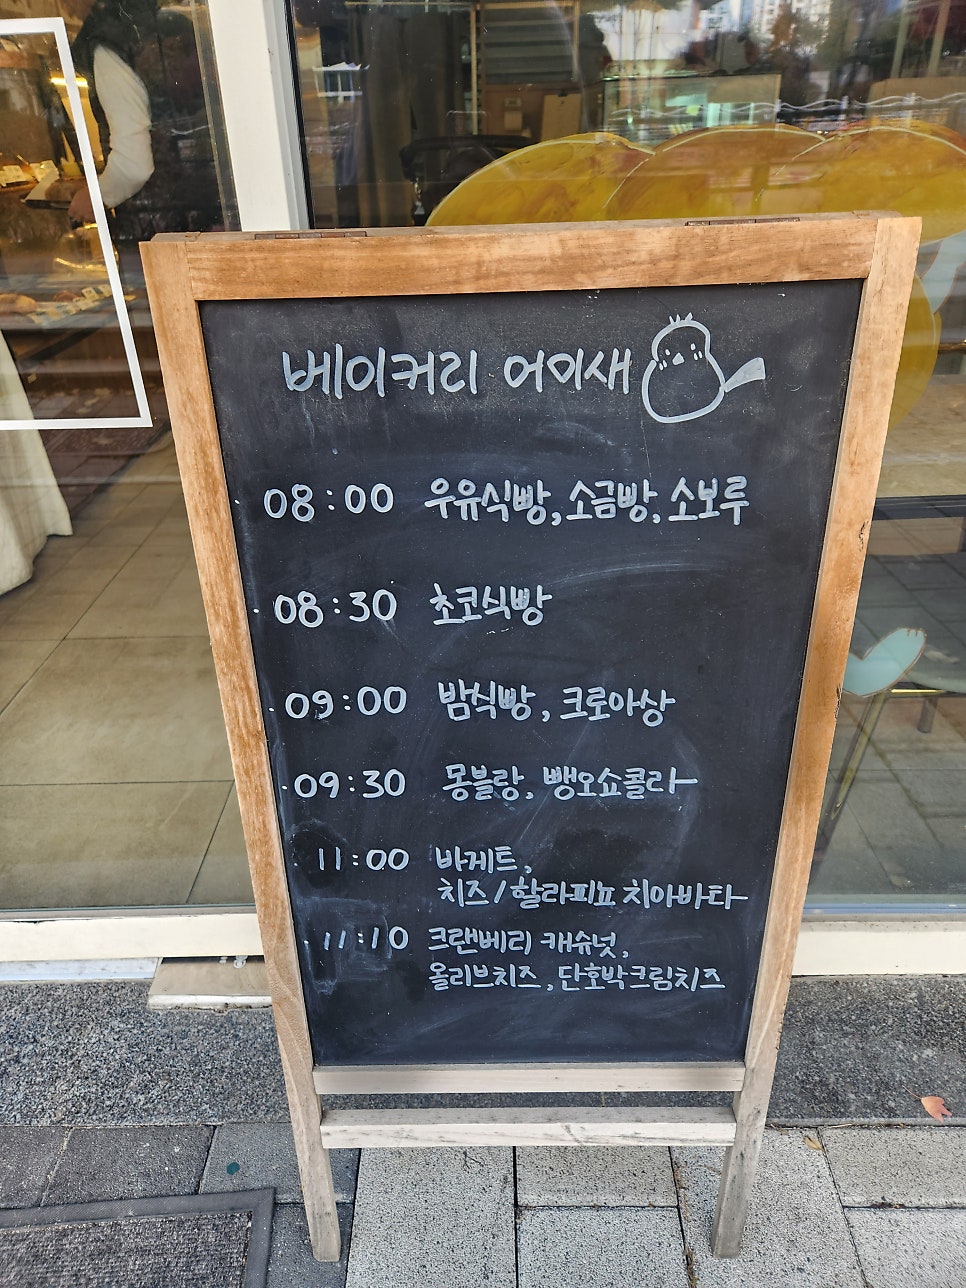 베이커리 어미새
08:00 우유식빵, 소금빵, 소보루
08:30 초코식빵
09:00 밤식빵, 크로아상
09:30 몽블랑, 뺑오쇼콜라
11:00 바게트,
치즈/할라피뇨 치아바타
11:10 크랜베리 캐슈넛,
올리브치즈, 단호박크림치즈